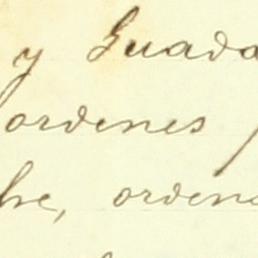 y Guada
ordenes
he, ordene